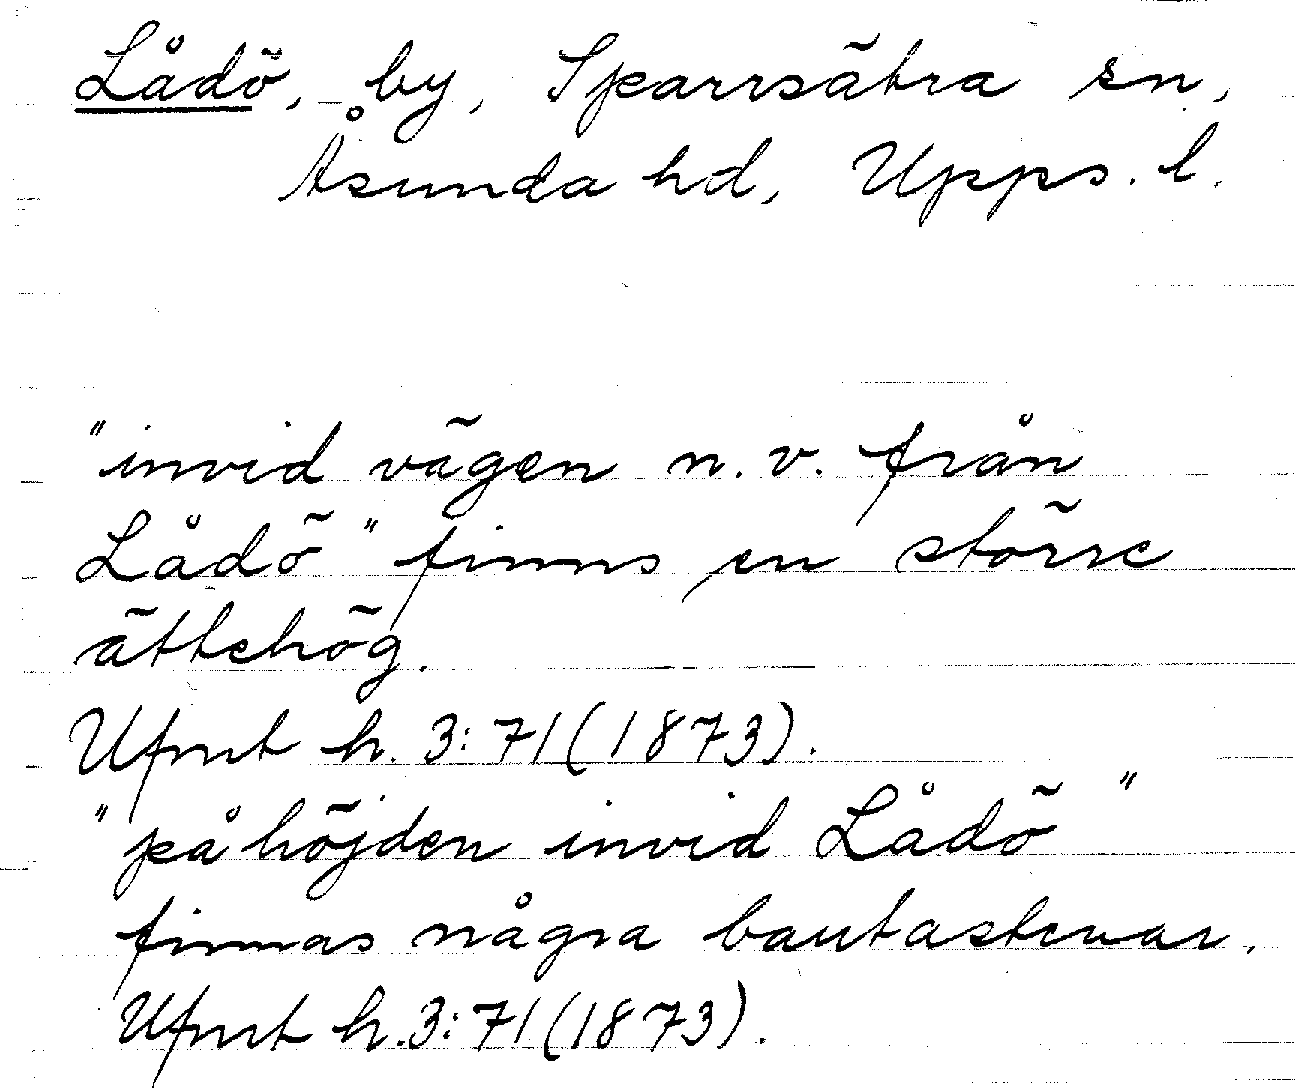 Lådö, by, Sparrsätra sn,
Åsunda hd, Upps. l.
"invid vägen n. v. från
Lådö" finns en större
ättehög.
Ufmt h. 3:71 (1873).
"på höjden invid Lådö"
finnas några bautastenar.
Ufmt h. 3:71 (1873).